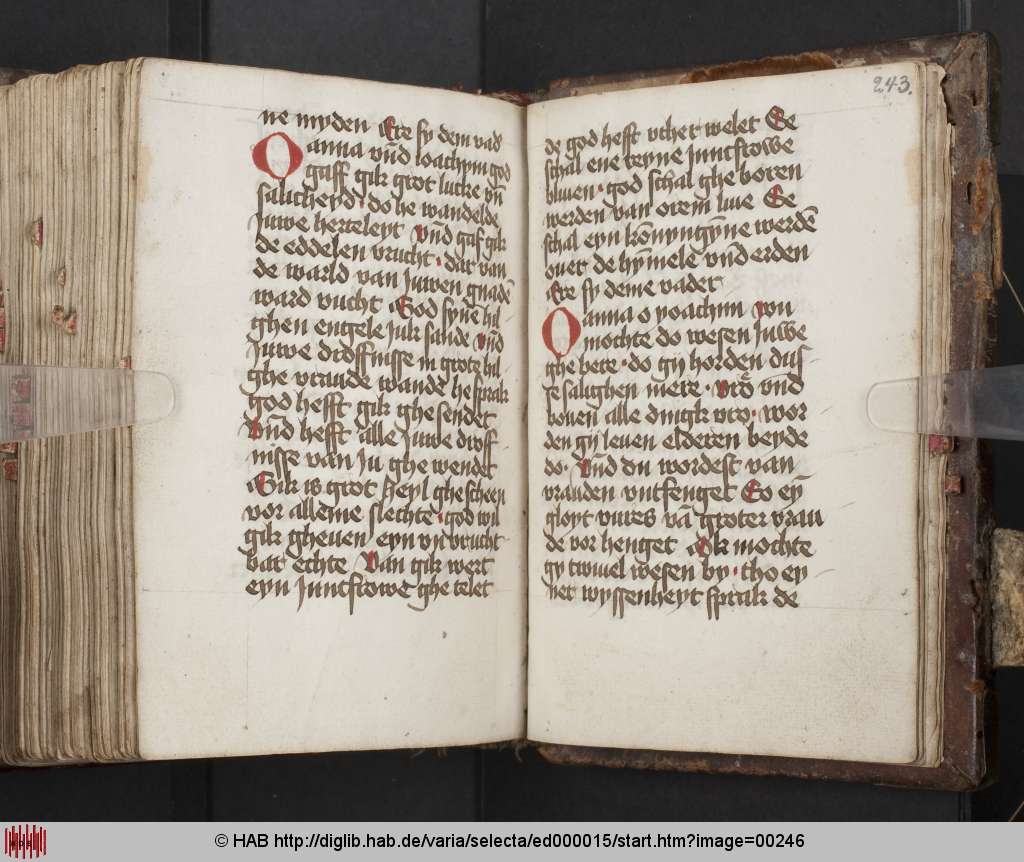 ne myden Ere sy dem vad
O anna vn̄d Ioachym god
gaff gik grot lucke vn̄
salicheyd · do he wandelde
Juwe herteleyt Vn̄d gaf gik
de eddelen vrucht · dat van
de warld van Juwen gnadē
ward vucht God synē hil
ghen engele Juk sande Vn̄d
Juwe droffnisse in grote hil
ghe vraude wandē he sprak
god hefft gik ghe sendet
Vn̄d hefft alle Juwe droff
nisse van Ju ghe wendet
Gik is grot heyl ghe scheen
vor alleme slechte · god wil
gik gheuen eyn vrucht
bat echte Van gik wert
eyn Juncfrowe ghe telet
243.
de god hefft vther welet Se
schal ene reyne Juncfrowe
bliuen · god schal ghe boren
werden van orem liue Se
schal eyn kōnyngȳne werdē
ouer de hȳmele vn̄d erden
Ere sy deme vader
O anna o yoachim Wu
mochte do wesen Juwe
ghe bere · do gy horden dus
se salighen mere · Vrō vnd
bouen alle dingk vro · wor
den gy leuen elderen beyde
do · Vn̄d du wordest van
vrauden vntfenget So eȳ
gloyt vures vā groter vrau
de vor henget Ok mochte
gy twiuel wesen by · tho ey
ner wyssenheyt sprak de
© HAB http://diglib.hab.de/varia/selecta/ed000015/start.htm?image=00246